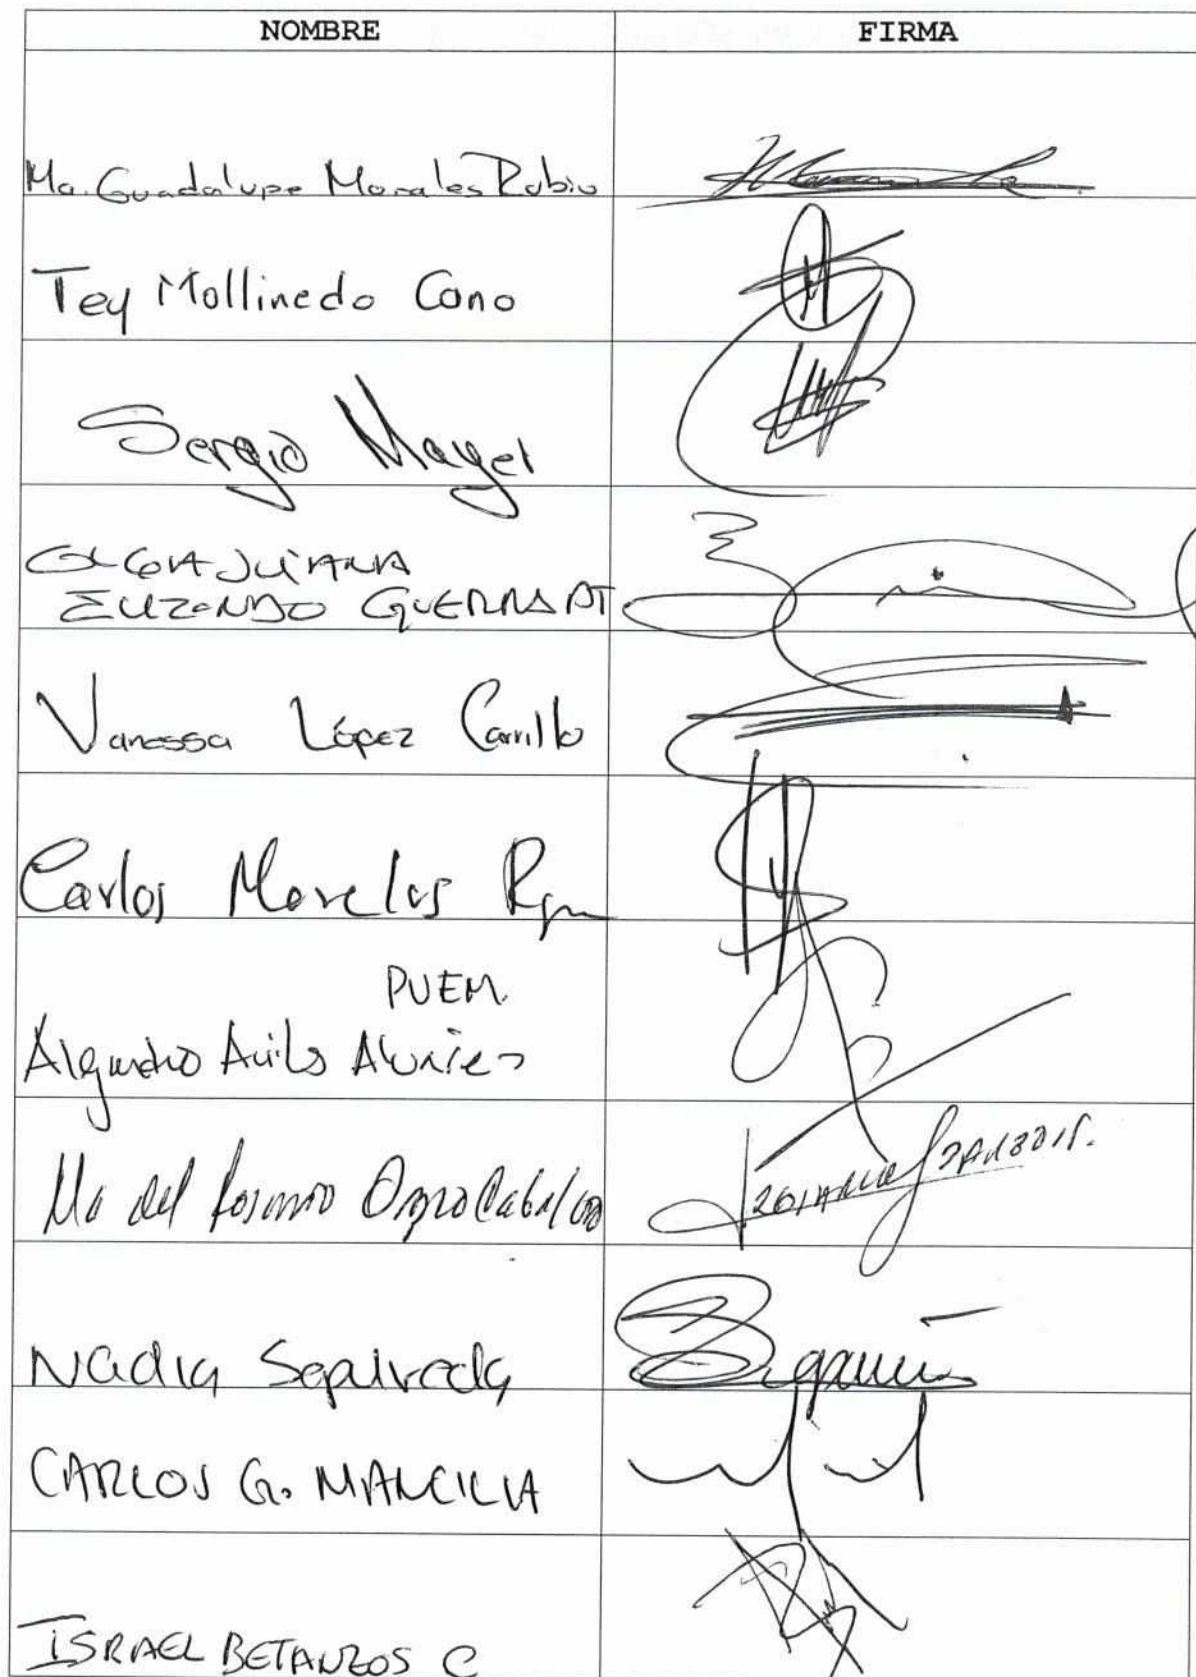 NOMBRE FIRMA
Ma. Guadalupe Morales Rubio
Tey Mollinedo Cano
Sergio Mayer
OLGA JULIANA
ELIZONDO GUERRA PT.
Vanessa López Carrillo
Carlos Morelos
PVEM.
Alejandro Avila Alvarez
Ma del Rosario Orozco Caballero
Nadia Sepulveda
CARLOS G. MANCILLA
ISRAEL BETANZOS C